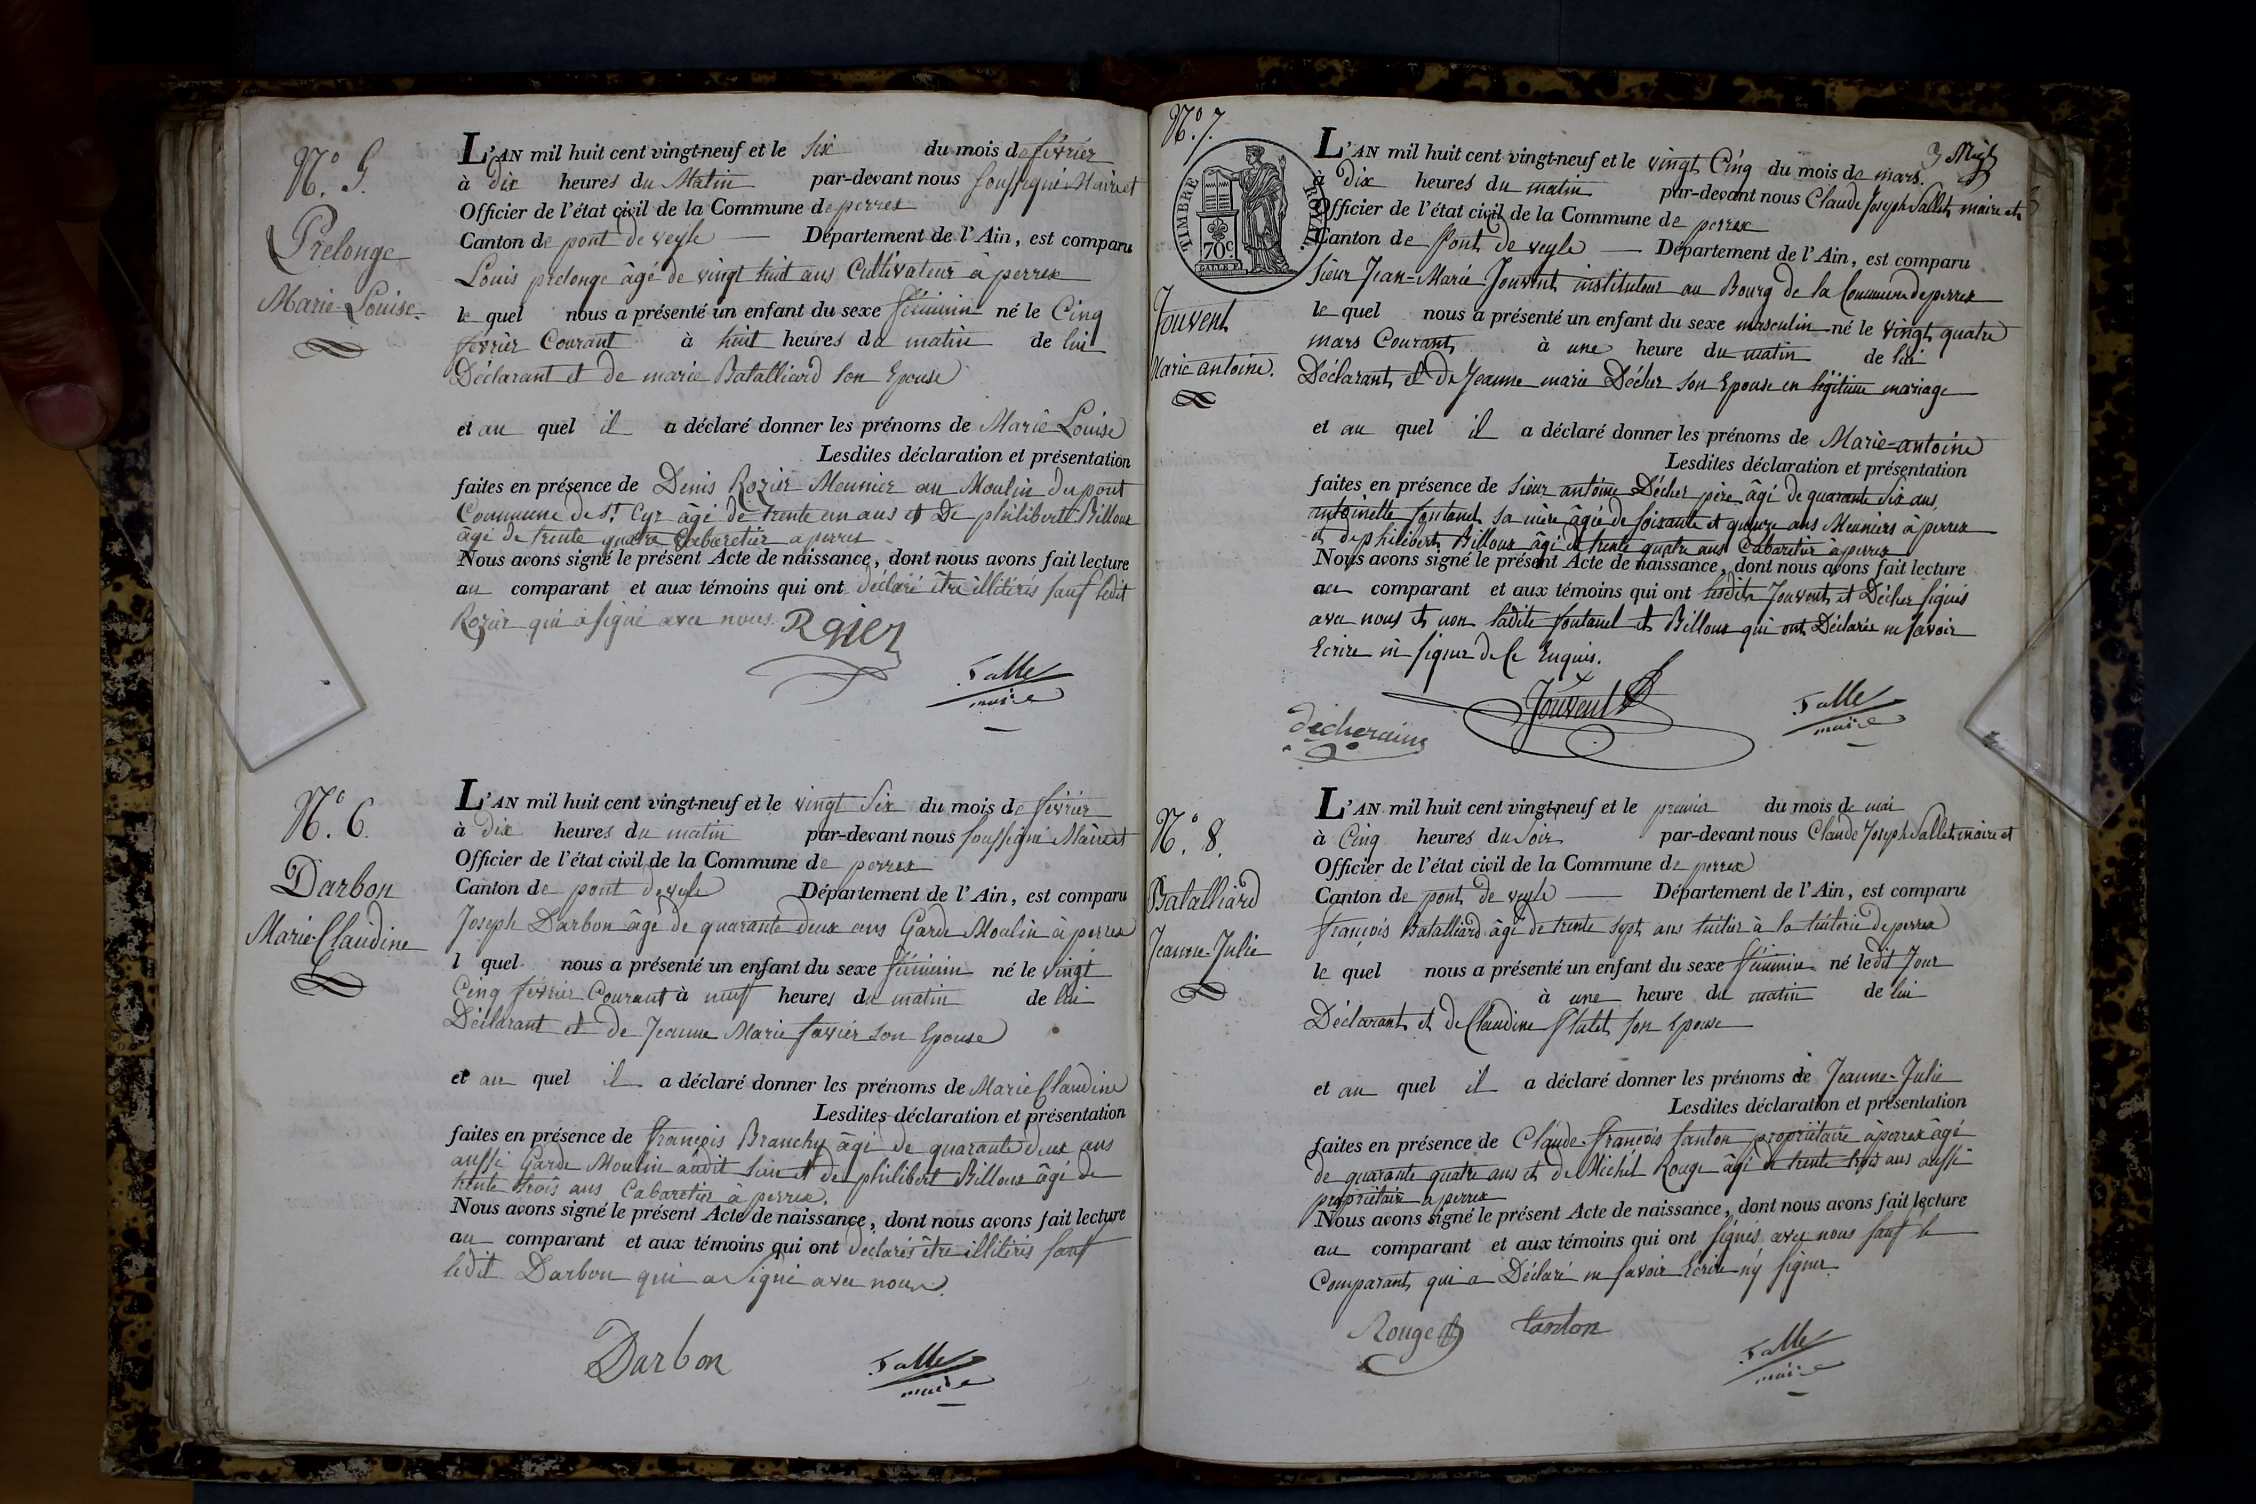 N.° 5.
Prelonge
Marie-Louise.
L'AN mil huit cent vingt-neuf et le Six du mois de février
à Dix heures du Matin par-devant nous soussigné Maire et
Officier de l'état civil de la Commune de perrex
Canton de pont de veyle Département de l'Ain, est comparu
Louis prelonge âgé de vingt huit ans Cultivateur à perrex
le quel nous a présenté un enfant du sexe féminin né le Cinq
février Courant à huit heures du matin de lui
Déclarant et de marie Batalliard son Epouse
et au quel il a déclaré donner les prénoms de Marie Louise
Lesdites déclaration et présentation
faites en présence de Denis Rozier Meunier au Moulin du pont
Commune de St. Cyr âgé de trente un ans et De philibert Billoux
âgé de trente quatre Cabaretier a perrex
Nous avons signé le présent Acte de naissance, dont nous avons fait lecture
au comparant et aux témoins qui ont déclaré être illitérés sauf ledit
Rozier qui a signé avec nous.
Sallet
maire
N.° 6.
Darbon
Marie-Claudine
L'AN mil huit cent vingt-neuf et le vingt Six du mois de février
à dix heures du matin par-devant nous soussigné Maire et
Officier de l'état civil de la Commune de perrex
Canton de pont de veyle Département de l'Ain, est comparu
Joseph Darbon âgé de quarante deux ans Garde Moulin à perrex
l quel nous a présenté un enfant du sexe féminin né le vingt
Cinq février Courant à neuf heures du matin de lui
Déclarant et de Jeanne Marie favier son Epouse
et au quel il a déclaré donner les prénoms de Marie Claudine
Lesdites déclaration et présentation
faites en présence de François Branchy âgé de quarante deux ans
aussi Garde Moulin audit lieu et de philibert Billoux âgé de
trente trois ans Cabaretier à perrex.
Nous avons signé le présent Acte de naissance, dont nous avons fait lecture
au comparant et aux témoins qui ont déclarés être illitérés sauf
ledit Darbon qui a Signé avec nous.
Darbon
Sallet
maire
N.° 7.
TIMBRE ROYAL
70c
3 
Jouvent
Marie antoine.
L'AN mil huit cent vingt-neuf et le vingt Cinq du mois de mars.
à Dix heures du matin par-devant nous Claude Joseph Sallet maire et
Officier de l'état civil de la Commune de perrex
Canton de Pont de veyle Département de l'Ain, est comparu
Sieur Jean-Marie Jouvent instituteur au Bourg de la Commune de perrex
le quel nous a présenté un enfant du sexe masculin né le vingt quatre
mars Courant à une heure du matin de lui
Déclarant et de Jeanne marie Décher son Epouse en légitime mariage
et au quel il a déclaré donner les prénoms de Marie-antoine
Lesdites déclaration et présentation
faites en présence de Sieur antoine Décher père âgé de quarante Six ans,
antoinette fontanel sa mère âgée de soixante et quinze ans Meuniers à perrex
et de philibert Billoux âgé de trente quatre ans Cabaretier à perrex
Nous avons signé le présent Acte de naissance, dont nous avons fait lecture
au comparant et aux témoins qui ont lesdits Jouvent et Décher signés
avec nous et non ladite fontanel et Billoux qui ont Déclarés ne savoir
Ecrire ni signer de Ce Enquis.
Jouvent
Sallet
maire
N.° 8.
Batalliard
Jeanne-Julie
L'AN mil huit cent vingt-neuf et le premier du mois de mai
à Cinq heures du Soir par-devant nous Claude Joseph Sallet maire et
Officier de l'état civil de la Commune de perrex
Canton de pont de veyle Département de l'Ain, est comparu
françois Batalliard âgé de trente Sept ans tuilier à la tuilerie de perrex
le quel nous a présenté un enfant du sexe féminin né ledit Jour
à une heure du matin de lui
Déclarant et de Claudine Platet son Epouse
et au quel il a déclaré donner les prénoms de Jeanne-Julie
Lesdites déclaration et présentation
faites en présence de Claude-françois tanton propriétaire à perrex âgé
de quarante quatre ans et de Michel Rouge âgé de trente trois ans aussi
propriétaire a perrex
Nous avons signé le présent Acte de naissance, dont nous avons fait lecture
au comparant et aux témoins qui ont signés avec nous sauf le
Comparant qui a Déclaré ne savoir Ecrire ny signer.
Rouge tanton
Sallet
maire